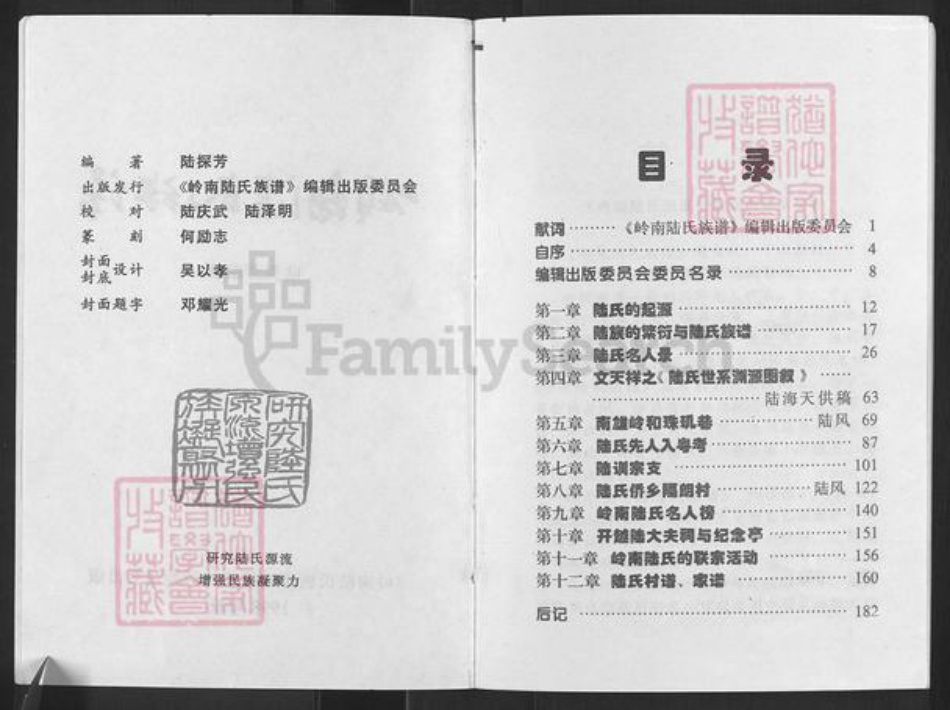 编 著 陆探芳
出版发行 《岭南陆氏族谱》编辑出版委员会
校 对 陆庆武 陆泽明
篆 刻 何励志
封面
封底设计 吴以孝
封面题字 邓耀光
研究陆氏
源流增强民
族凝聚力
研究陆氏源流
增强民族凝聚力
FamilySearch
目 录
献词………《岭南陆氏族谱》编辑出版委员会 1
自序……………………………………… 4
编辑出版委员会委员名录……………… 8
第一章 陆氏的起源…………………… 12
第二章 陆族的繁衍与陆氏族谱……… 17
第三章 陆氏名人录…………………… 26
第四章 文天祥之《陆氏世系渊源图叙》……
……………………………陆海天供稿 63
第五章 南雄岭和珠玑巷…………陆风 69
第六章 陆氏先人入粤考……………… 87
第七章 陆训宗支……………………… 101
第八章 陆氏侨乡隔朗村…………陆风 122
第九章 岭南陆氏名人榜……………… 140
第十章 开越陆大夫祠与纪念亭……… 151
第十一章 岭南陆氏的联宗活动……… 156
第十二章 陆氏村谱、家谱…………… 160
后记……………………………………… 182